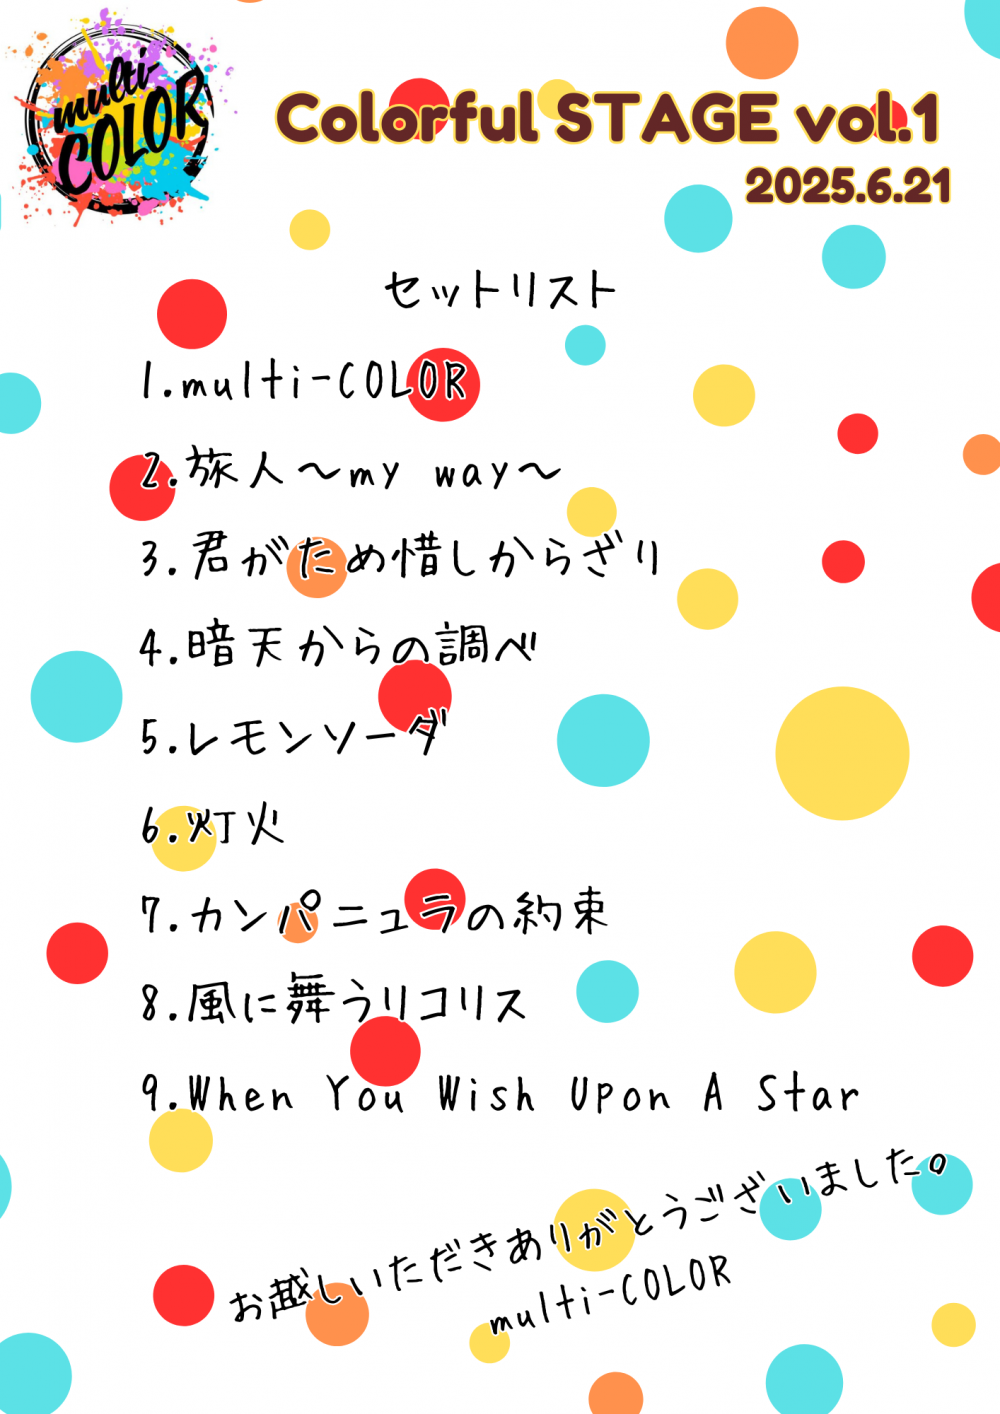 multi-
COLOR
Colorful STAGE vol.1
2025.6.21
セットリスト
1.multi-COLOR
2.旅人～my way～
3.君がため惜しからざり
4.暗天からの調べ
5.レモンソーダ
6.灯火
7.カンパニュラの約束
8.風に舞うリコリス
9.When You Wish Upon A Star
お越しいただきありがとうございました。
multi-COLOR